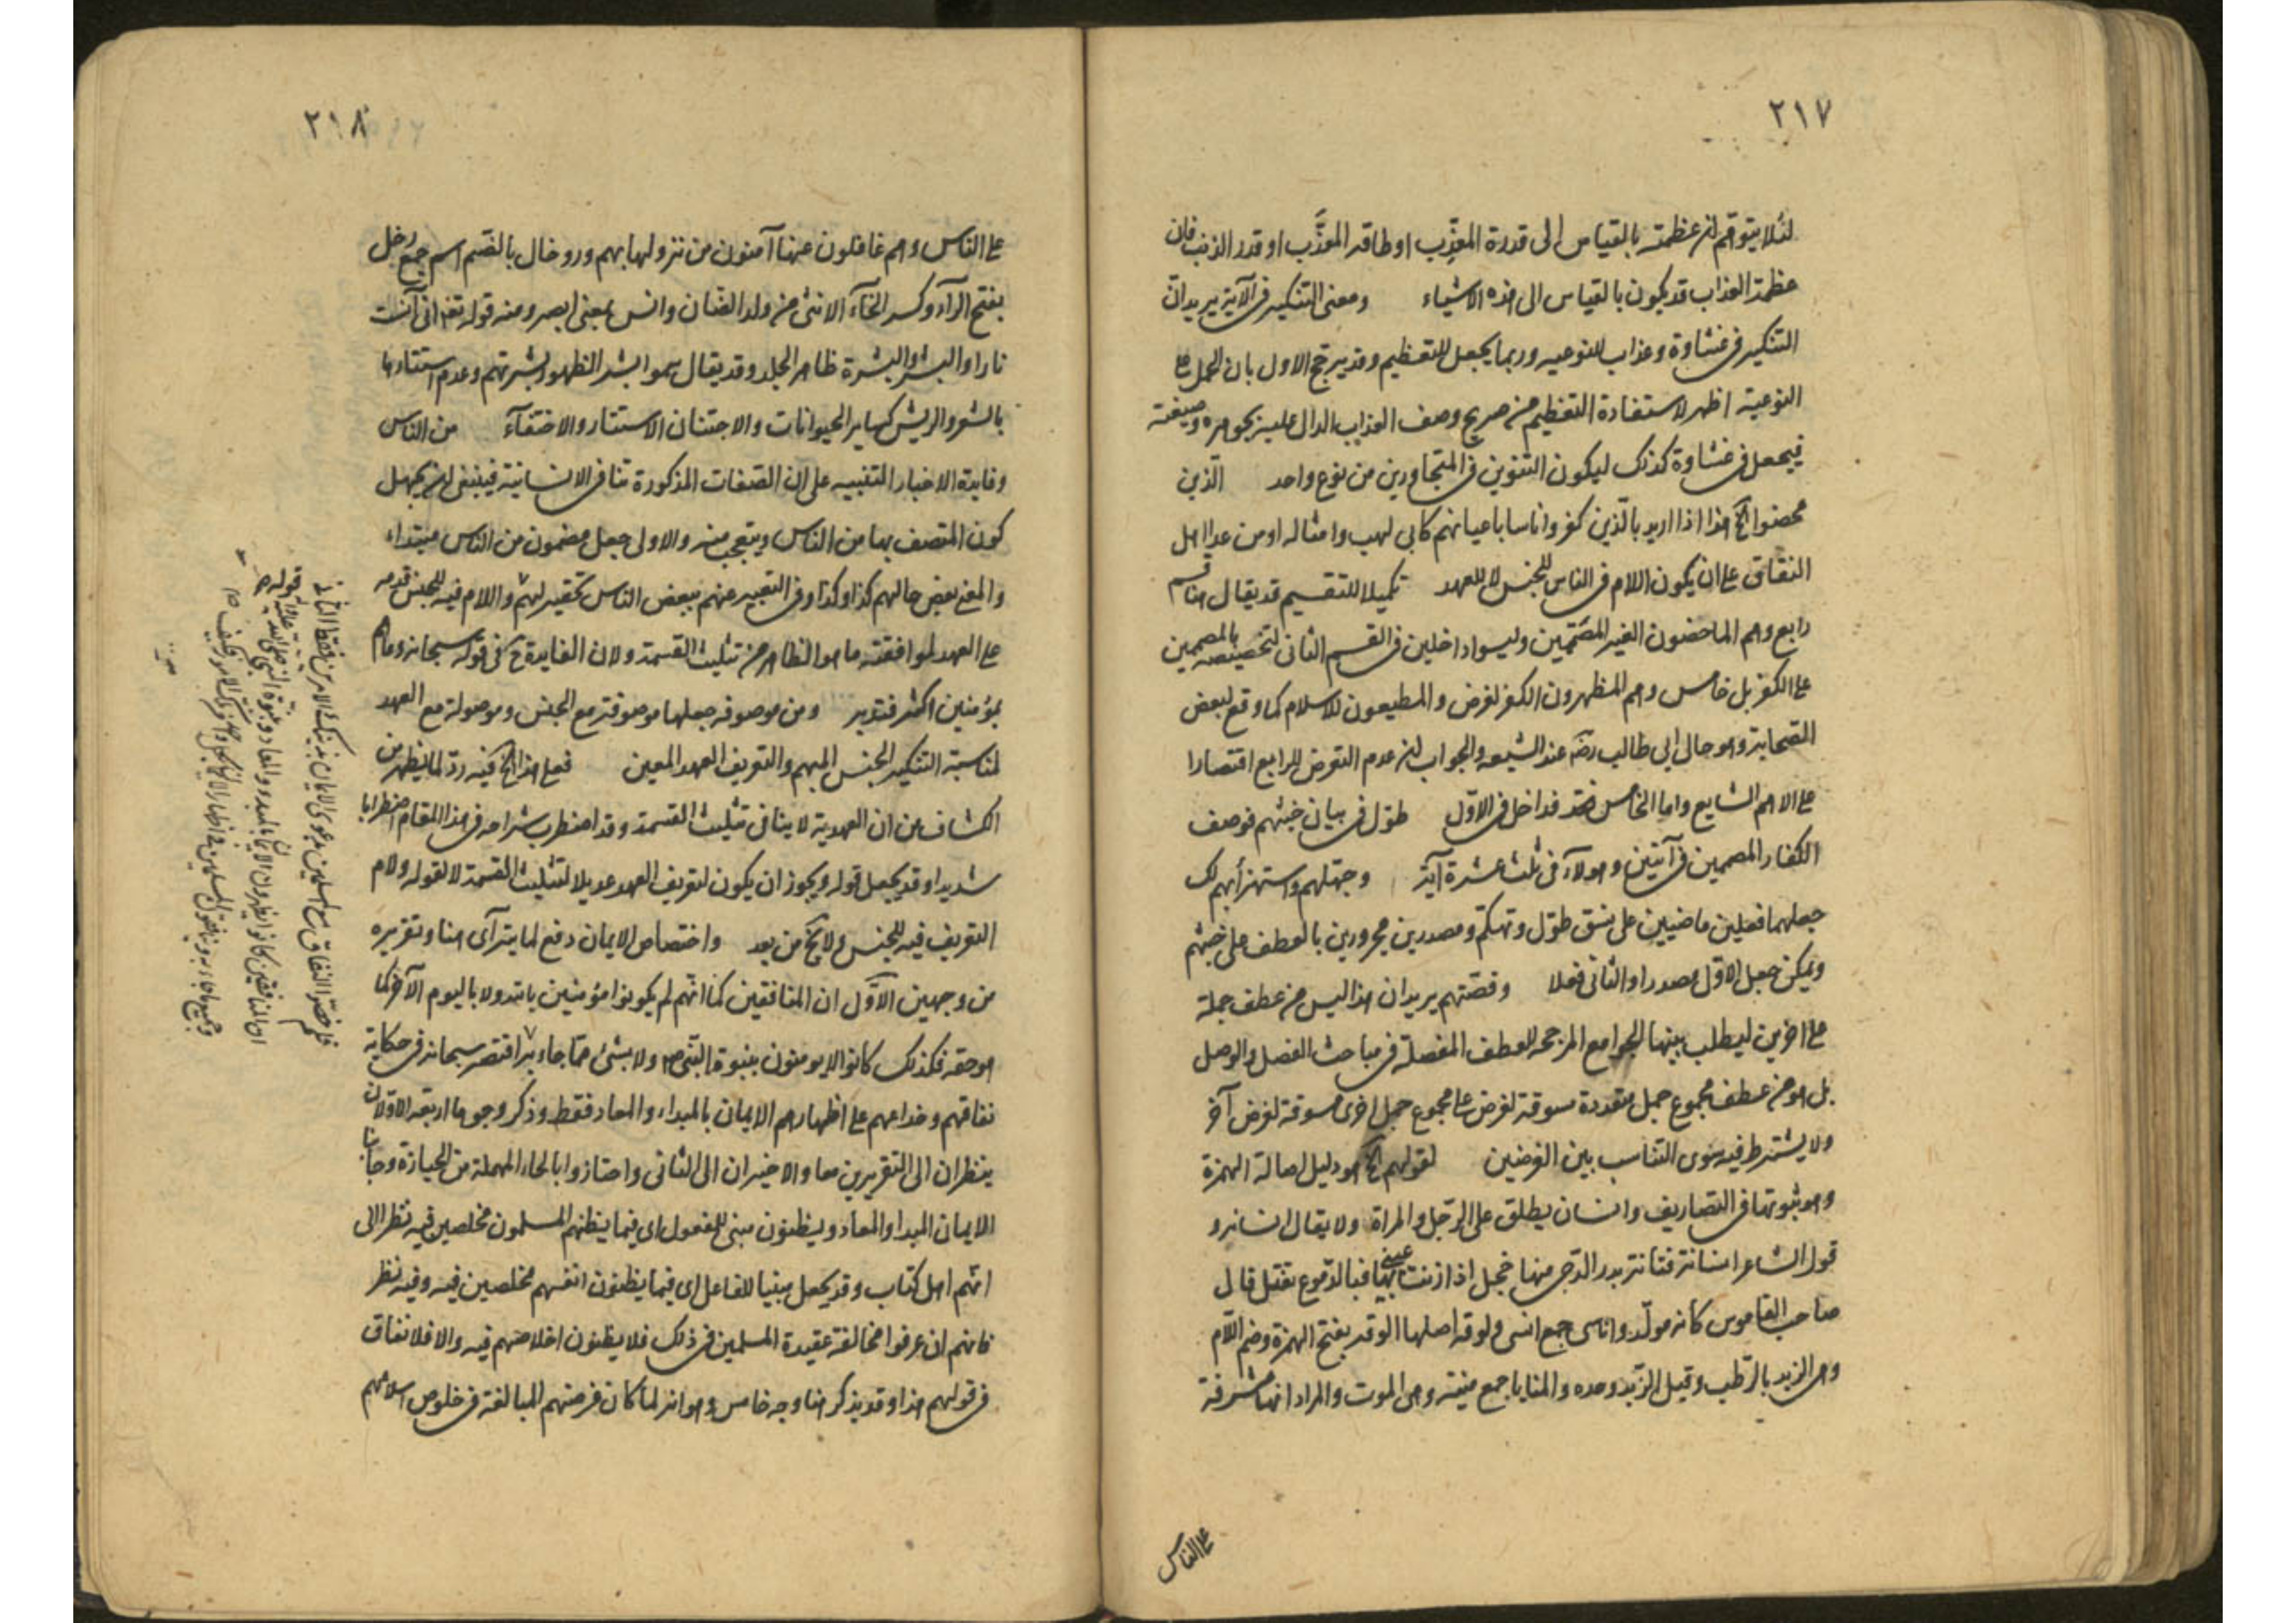 ٢١٧
لئلا يتوهم ان عظمته بالقياس الى قدرة المعذِّب او طاقة المعذَّب او قدر الذنب فان
عظمة العذاب قد يكون بالقياس الى هذه الاشياء ومعنى التنكير فى الآية يريد ان
التنكير فى غشاوة وعذاب للنوعيه وربما يجعل للتعظيم وقد يرجح الاول بان الحمل على
النوعية اظهر لاستفادة التعظيم من صريح وصف العذاب الدال عليه بجوهره وصيغته
فيجعل فى غشاوة كذلك ليكون التنوين فى المتجاورين من نوع واحد الذين
محضوا الخ هذا اذا اريد بالذين كفروا ناسا باعيانهم كابى لهب وامثاله او من عدا اهل
النفاق على ان يكون اللام فى الناس للجنس لا للعهد تكميلا للتقسيم قد يقال هنا قسم
رابع وهم الماحضون الغير المصممين وليسوا داخلين فى القسم الثانى لتخصيصه بالمصممين
على الكفر بل خامس وهم المظهرون الكفر لغرض والمطيعون للاسلام كما وقع لبعض
الصحابة وهو حال ابى طالب رضه عند الشيعه والجواب ان عدم التعرض للرابع اقتصارا
على الاهم الشايع واما الخامس فقد دخل فى الاول طول فى بيان خبثهم فوصف
الكفار المصممين فى آيتين وهولآء فى ثلث عشرة آية وجهلهم واستهزأ بهم لك
جعلهما فعلين ماضيين على نسق طوّل وتهكم ومصدرين مجرورين بالعطف على خبثهم
ويمكن جعل الاول مصدرا والثانى فعلا وقصتهم يريد ان هذا ليس من عطف جملة
على اخرى ليطلب بينهما الجوامع المرجحه للعطف المفصلة فى مباحث الفصل والوصل
بل هو من عطف مجموع جمل متعددة مسوقة لغرض على مجموع جمل اخرى مسوقة لغرض آخر
ولا يشترط فيه سوى التناسب بين الغرضين لقولهم الخ هو دليل اصالة الهمزة
وهو ثبوتها فى التصاريف وانسان يطلق على الرجل والمراة ولا يقال انسانه و
قول الشاعر انسانة فتانة بدر الدجى منها خجل اذا زنت عينى بها فبالدموع تغتسل قال
صاحب القاموس كانه مولّد واناسى جمع انسى ولوقه اصلها الوقه بفتح الهمزة وضم اللام
وهى الزبد بالرطب وقيل الزبد وحده والمنايا جمع منية وهى الموت والمراد انها مشرفة
على الناس
٢١٨
على الناس وهم غافلون عنها آمنون من نزولها بهم ورخال بالضم اسم جمع رخل
بفتح الرآء وكسر الخآء الانثى من ولد الضان وانس بمعنى ابصر ومنه قوله تع انى آنست
نارا والبشر والبشرة ظاهر الجلد وقد يقال سموا بشر الظهور بشرتهم وعدم استتارها
بالشعر والريش كساير الحيوانات والاجتنان الاستتار والاختفآء من الناس
وفايدة الاخبار التنبيه على ان الصفات المذكورة تنافى الانسانية فينبغى ان يجهل
كون المتصف بها من الناس ويتعجب منه والاولى جعل مضمون من الناس مبتداء
والمعنى بعض حالهم كذا وكذا وفى التعبير عنهم ببعض الناس تحقير لهم واللام فيه للجنس قدمه
على العهد لموافقته ما هو الظاهر من تثليث القسمة ولان الفايدة ح فى قوله سبحانه وما هم
بمؤمنين اكثر فتدبر ومن موصوفه جعلها موصوفة مع الجنس وموصولة مع العهد
لمناسبة التنكير الجنس المبهم والتعريف العهد المعين فعلى هذا الخ فيه رد لما يظهر من
الكشاف من ان العهدية لا ينافى تثليث القسمة وقد اضطرب شراحه فى هذا المقام اضطرابا
شديدا وقد يجعل قوله ويجوز ان يكون لتعريف العهد عديلا لتثليث القسمة لا لقوله ولام
التعريف فيه للجنس ولا يخ من بعد واختصاص الايمان دفع لما يترآى هنا وتقريره
من وجهين الاول ان المنافقين كما انهم لم يكونوا مؤمنين بالله ولا باليوم الآخر كما
هو حقه فكذلك كانوا لا يومنون بنبوة النبى ص ولا بشئ مما جاء به اقتصر سبحانه فى حكاية
نفاقهم وخداعهم على اظهارهم الايمان بالمبداء والمعاد فقط وذكر وجوها اربعه الاولان
ينظران الى التقريرين معا والاخيران الى الثانى واحتازوا بالحاء المهملة من الحيازة وجانبا
الايمان المبدا والمعاد ويظنون مبنى للمفعول اى فيما يظنهم المسلمون مخلصين فيه نظرا الى
انهم اهل كتاب وقد يجعل مبنيا للفاعل اى فيما يظنون انفسهم مخلصين فيه وفيه نظر
فانهم ان عرفوا مخالفة عقيدة المسلمين فى ذلك فلا يظنون اخلاصهم فيه والا فلا نفاق
فى قولهم هذا وقد يذكر هنا وجه خامس وهو انه لما كان غرضهم المبالغة فى خلوص اسلامهم
ان المنافقين كانوا يظهرون الايمان بالمبدء والمعاد وبنبوة النبى صلى الله عليه وآله
فلم خصوا النفاق مع المسلمين بدعوى الايمان بذينك الامرين فقط